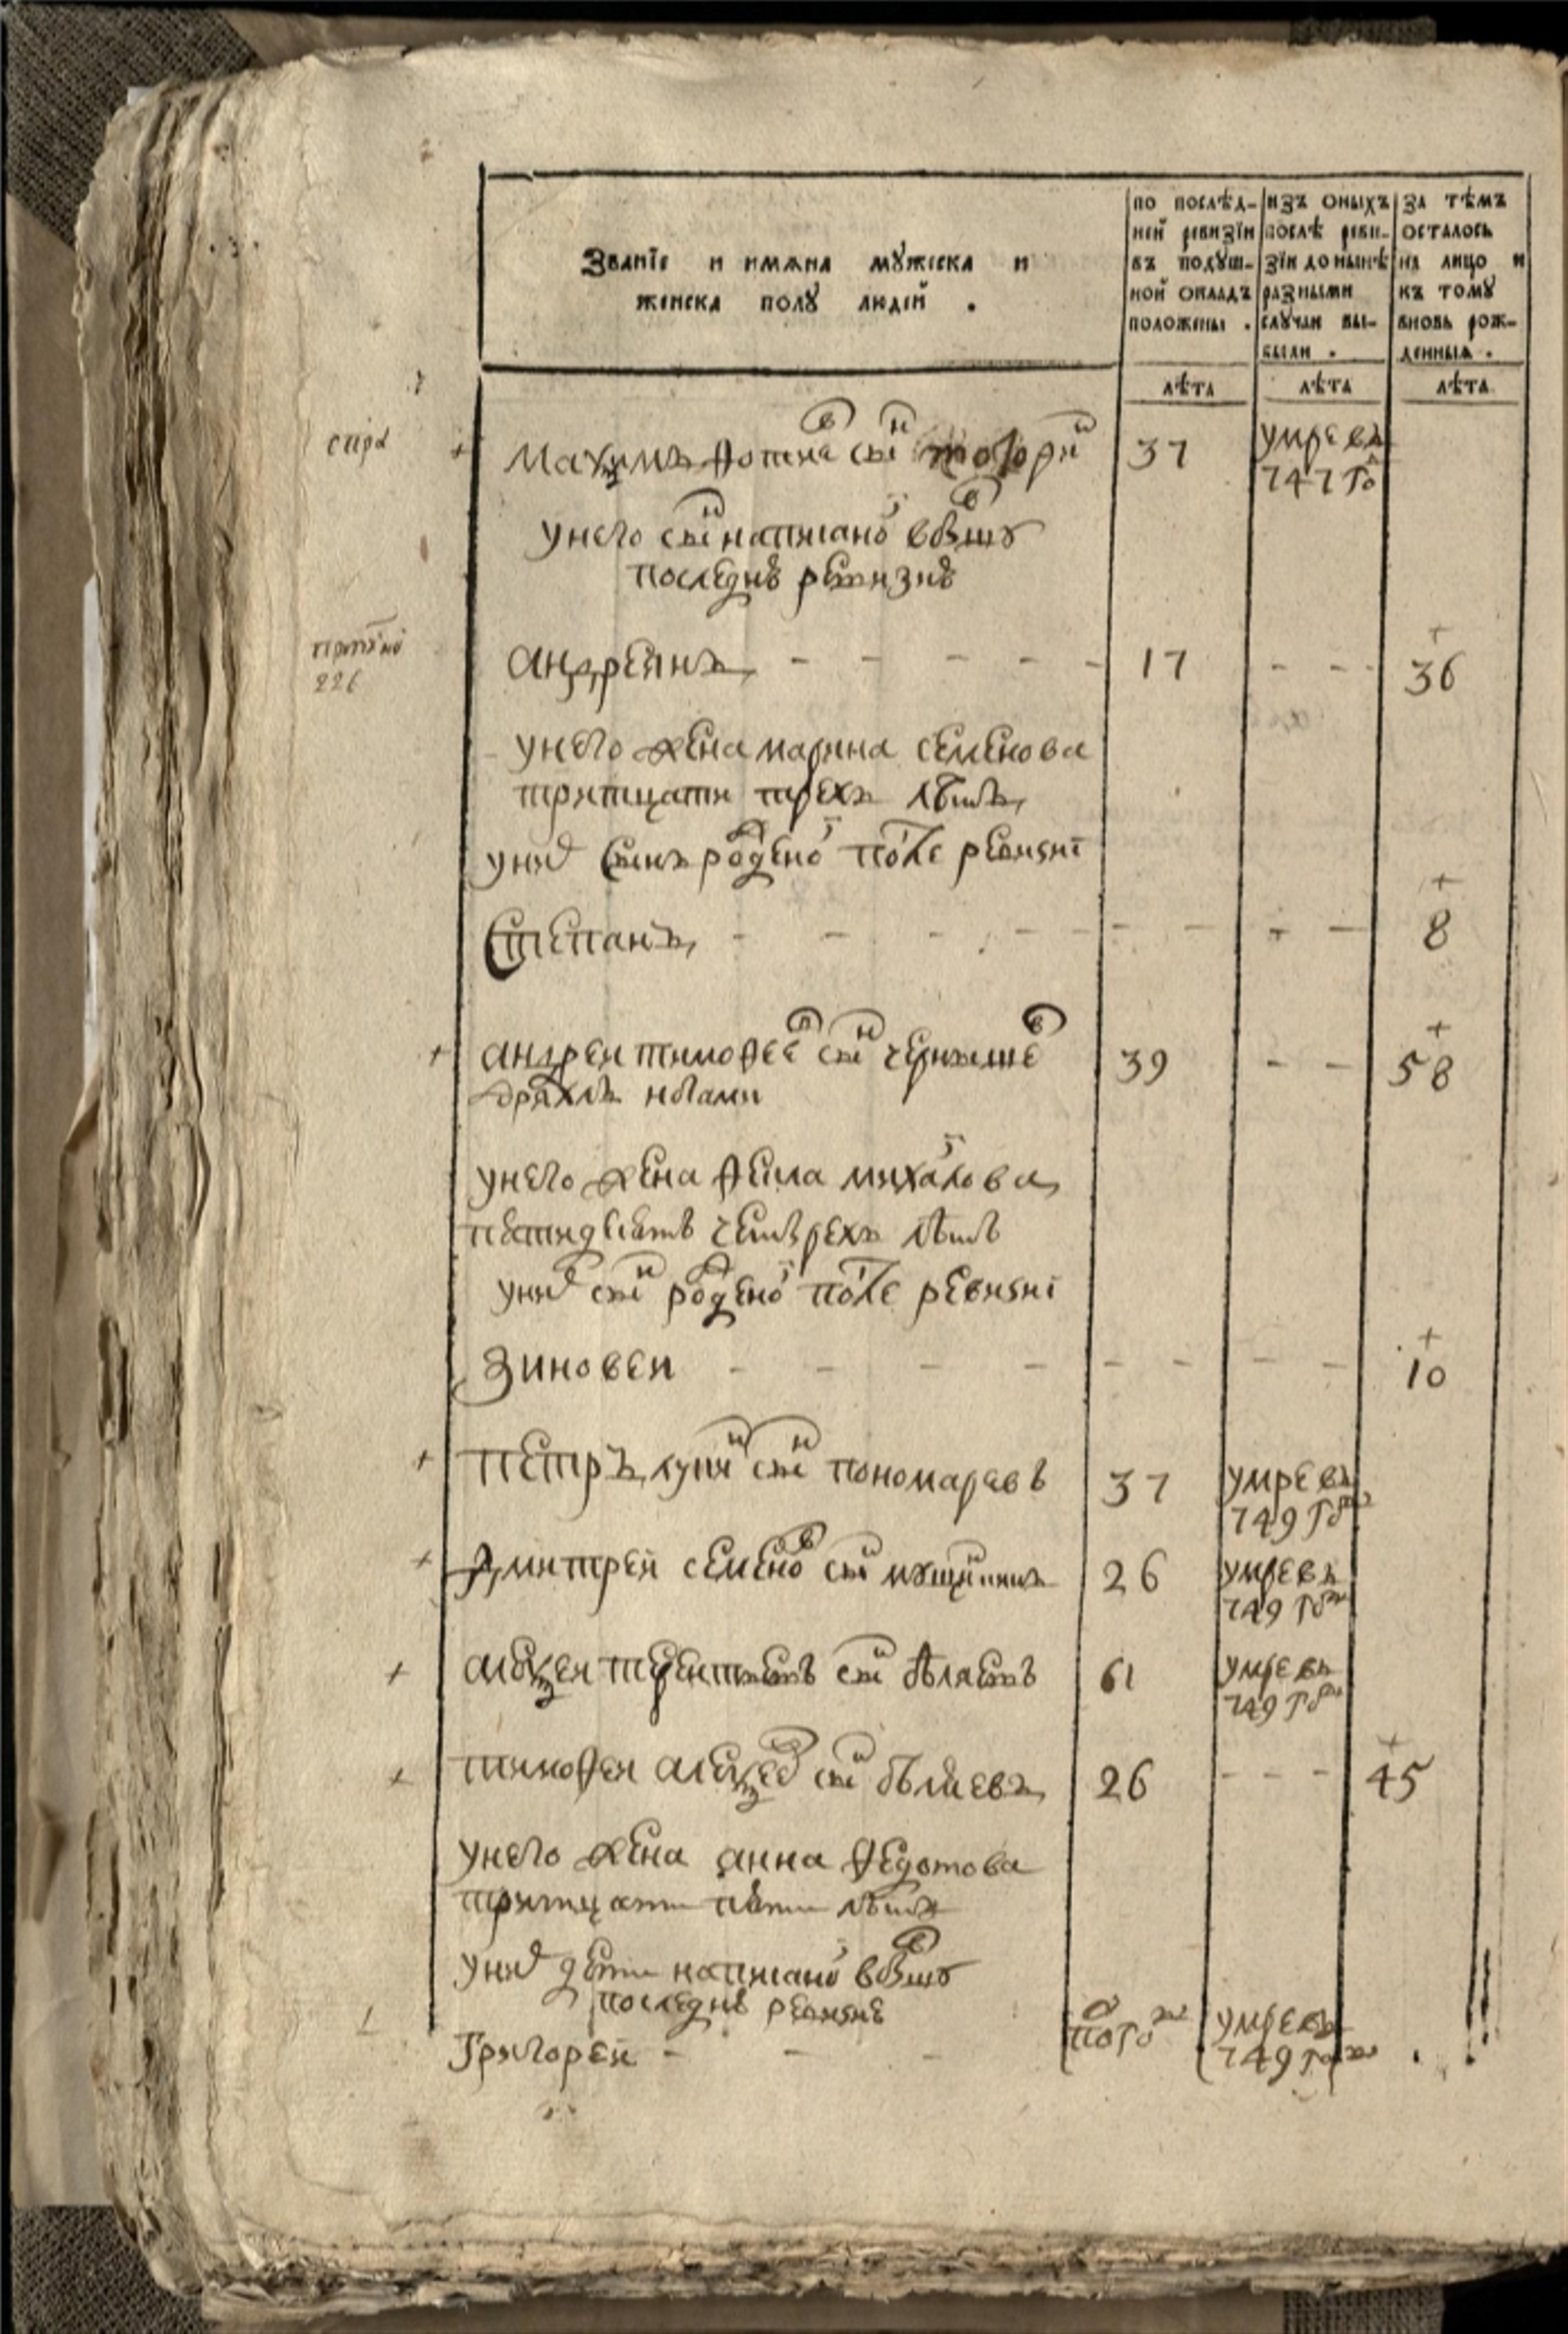 Званїе и имѧна мꙋжеска и
женска полꙋ людей .
по послѣд-
ней ревизїи
въ подꙋш-
ной окладъ
положены .
изъ оныхъ
послѣ реви-
зїи до нынѣ
разными
случаи вы-
были .
за тѣмъ
осталось
на лицо и
къ томꙋ
вновь рож-
денныѧ .
лѣта
лѣта
лѣта
Маѯимъ сн҃ъ
37
умре въ
747 го
у него сн҃ъ написано въшꙋ
последнѣ ревизиѣ
андреянъ - - - - -
17
- - -
+
36
у него жена марина семенова
тритцати трехъ лѣтъ
у них сынъ рожено после ревизиі
Степанъ - - - - - - - -
+
8
+ андреи тимофеев сн҃ъ чернышев
39
- -
+
58
дряхлъ ногами
у него жена михаилова
петидесятъ четырехъ лѣтъ
у них сн҃ъ рожено после ревизиі
Зиновеи - - - - - - - -
+
10
+ петръ лукин сн҃ъ пономаревъ
37
умре въ
749 годꙋ
+ Дмитреи семенов сн҃ъ
26
умре въ
749 годꙋ
+ алеѯеи терентьевъ сн҃ъ бѣляевъ
61
умре въ
749 годꙋ
+ тимофеи алеѯеев сн҃ъ бѣляевъ
26
- - -
+
45
у него жена анна федотова
тритцати пяти лѣтъ
у них дети написано въшꙋ
последнѣ ревизиѣ
Григореи - - -
умре въ
749 годꙋ